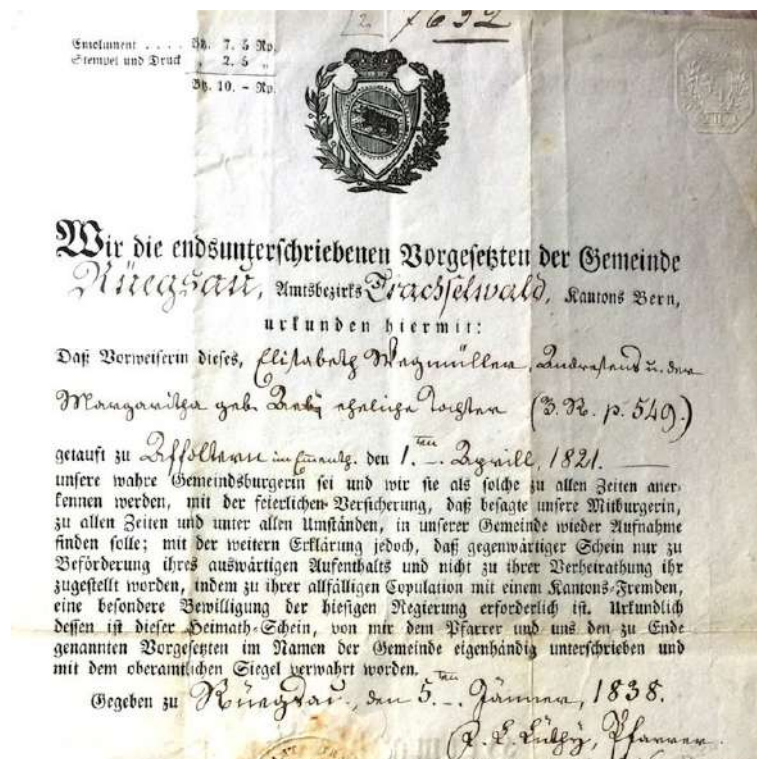 2 7632
Emolument . . . . Bz. 7. 5 Rp.
Stempel und Druck „ 2. 5 „
Bz. 10. – Rp.
Wir die endsunterschriebenen Vorgesetzten der Gemeinde
Rüegsau, Amtsbezirks Trachselwald, Kantons Bern,
urkunden hiermit:
Daß Vorweiserin dieses, Elisabeth Wegmüller, Andresens u. der
Margaritha geb. eheliche Tochter (B. R. p. 549.)
getauft zu Affoltern im Ementh. den 1.ten Aprill, 1821.
unsere wahre Gemeindsburgerin sei und wir sie als solche zu allen Zeiten aner-
kennen werden, mit der feierlichen Versicherung, daß besagte unsere Mitburgerin,
zu allen Zeiten und unter allen Umständen, in unserer Gemeinde wieder Aufnahme
finden solle; mit der weitern Erklärung jedoch, daß gegenwärtiger Schein nur zu
Beförderung ihres auswärtigen Aufenthalts und nicht zu ihrer Verheirathung ihr
zugestellt worden, indem zu ihrer allfälligen Copulation mit einem Kantons-Fremden,
eine besondere Bewilligung der hiesigen Regierung erforderlich ist. Urkundlich
dessen ist dieser Heimath-Schein, von mir dem Pfarrer und uns den zu Ende
genannten Vorgesetzten im Namen der Gemeinde eigenhändig unterschrieben und
mit dem oberamtlichen Siegel verwahrt worden.
Gegeben zu Rüegsau, den 5.ten Jänner, 1838.
Lüthy, Pfarrer